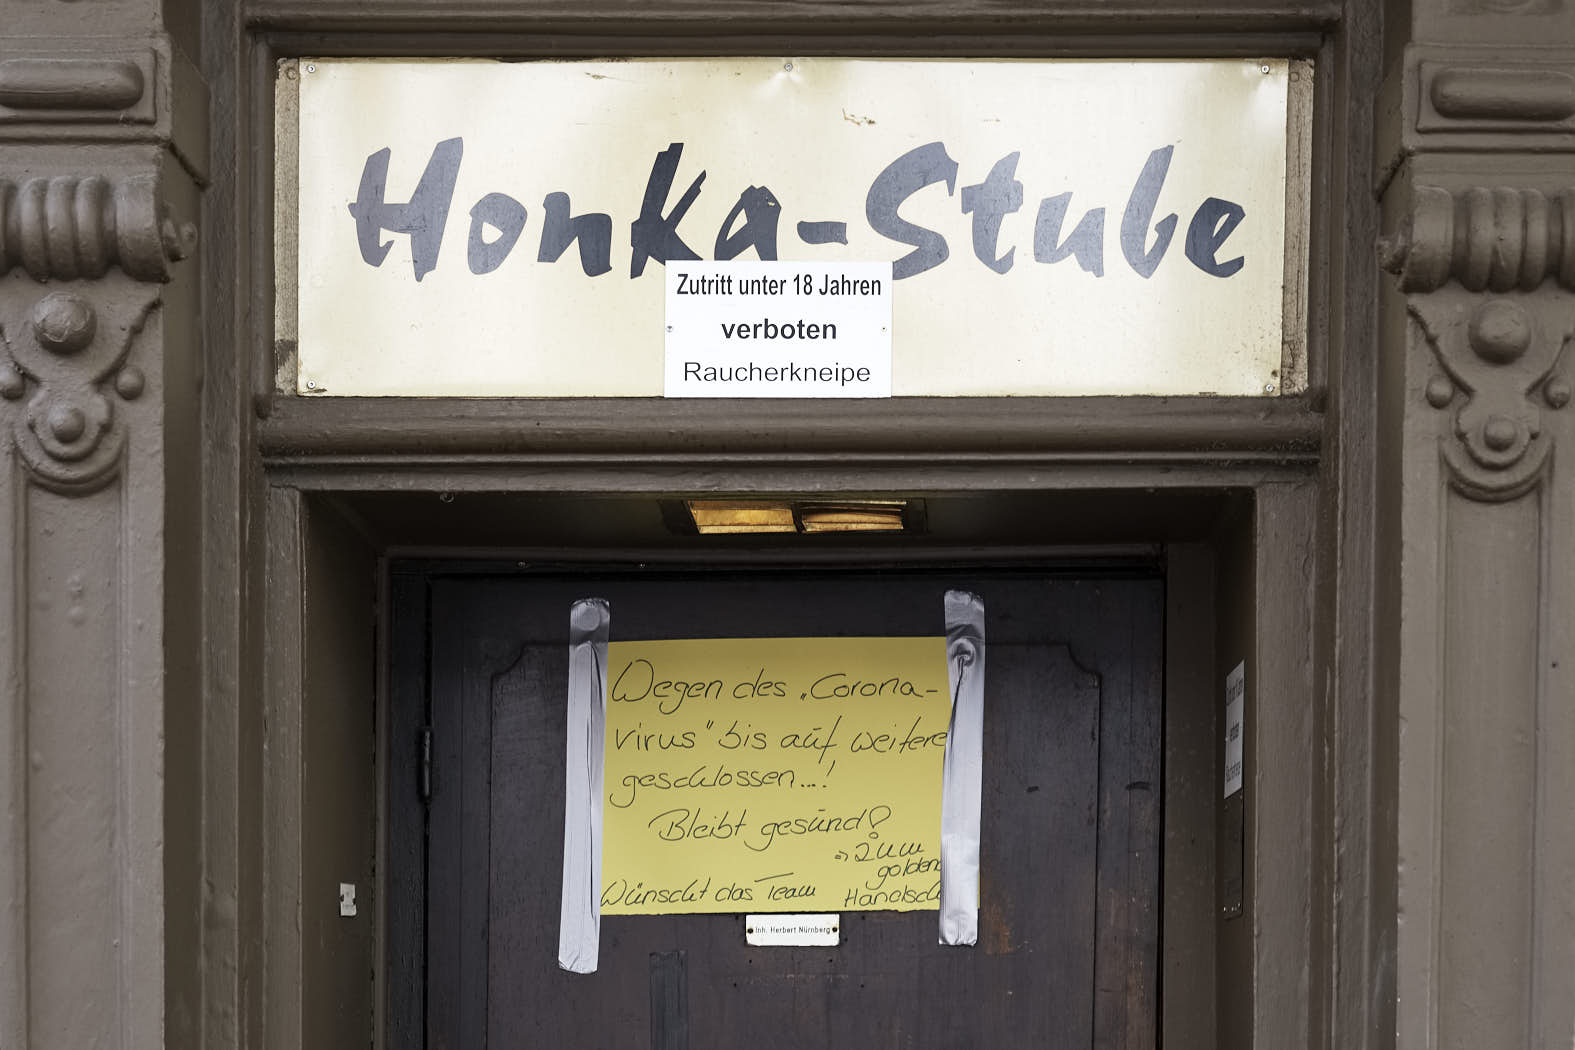 Honka-Stube
Zutritt unter 18 Jahren
verboten
Raucherkneipe
Wegen des „Corona-
virus" bis auf weitere
geschlossen...!
Bleibt gesund!
Wünscht das Team
"Zum
goldene
Handsch
Inh. Herbert Nürnberg